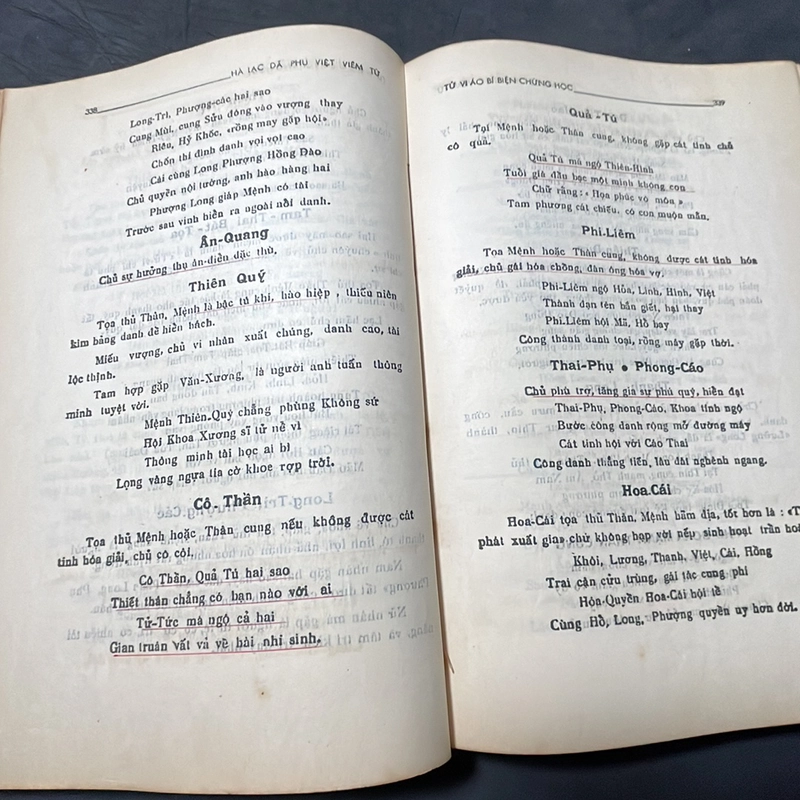 338
HÀ LẠC DÃ PHU VIỆT VIÊM TỬ
Long-Trì, Phượng-các hai sao
Cung Mùi, cung Sửu đóng vào vượng thay
Riêu, Hỷ Khốc, «rồng mây gặp hội»
Chốn thi đình danh vọi vọi cao
Cái cùng Long Phượng Hồng Đào
Chủ quyền nội tướng, anh hào hàng hai
Phượng Long giáp Mệnh có tài
Trước sau vinh hiển ra ngoài nổi danh.
Ân-Quang
Chủ sự hưởng thụ ân-điển đặc thù.
Thiên Quý
Tọa thủ Thân, Mệnh là bậc tú khí, hào hiệp, thiếu niên
kim bảng danh đề hiển hách.
Miếu vượng, chủ vi nhân xuất chúng, danh cao, tài
lộc thịnh.
Tam hợp gặp Văn-Xương, là người anh tuấn thông
minh tuyệt vời.
Mệnh Thiên-Quý chẳng phùng Không sứ
Hội Khoa Xương sĩ tử nề vì
Thông minh tài học ai bì
Lọng vàng ngựa tía cờ khoe rợp trời.
Cô-Thần
Tọa thủ Mệnh hoặc Thân cung nếu không được cát
tinh hóa giải, chủ cô cội.
Cô Thần, Quả Tú hai sao
Thiết thân chẳng có bạn nào với ai
Tử-Tức mà ngộ cả hai
Gian truân vất vả về hài nhi sinh.
TỬ VI ÁO BÍ BIỆN CHỨNG HỌC
339
Quả-Tú
Tọi Mệnh hoặc Thân cung, không gặp cát tinh chủ
cô quả.
Quả Tú mà ngộ Thiên-Hình
Tuổi già đầu bạc một mình không con
Chữ rằng: « Họa phúc vô môn»
Tam phương cát chiếu, có con muộn mằn.
Phi-Liêm
Tọa Mệnh hoặc Thân cung, không được cát tinh hóa
giải, chủ gái hóa chồng, đàn ông hóa vợ.
Phi-Liêm ngộ Hỏa, Linh, Hình, Việt
Thành đạn tên bắn giết, hại thay
Phi-Liêm hội Mã, Hồ bay
Công thành danh toại, rồng mây gặp thời.
Thai-Phụ • Phong-Cáo
Chủ phù trợ, tăng gia sự phú quý, hiển đạt
Thai-Phụ, Phong-Cáo, Khoa tinh ngộ
Bước công danh rộng mở đường mây
Cát tinh hội với Cáo Thai
Công danh thẳng tiến, lâu đài nghênh ngang.
Hoa-Cái
Hoa-Cái tọa thủ Thân, Mệnh hãm địa, tốt hơn là : «T
phát xuất gia» chứ không hợp với nếu sinh hoạt trần hoà
Khôi, Lương, Thanh, Việt, Cái, Hồng
Trai cận cửu trùng, gái tác cung phi
Hóa-Quyền Hoa-Cái hội tề
Cùng Hồ, Long, Phượng quyền uy hơn đời.